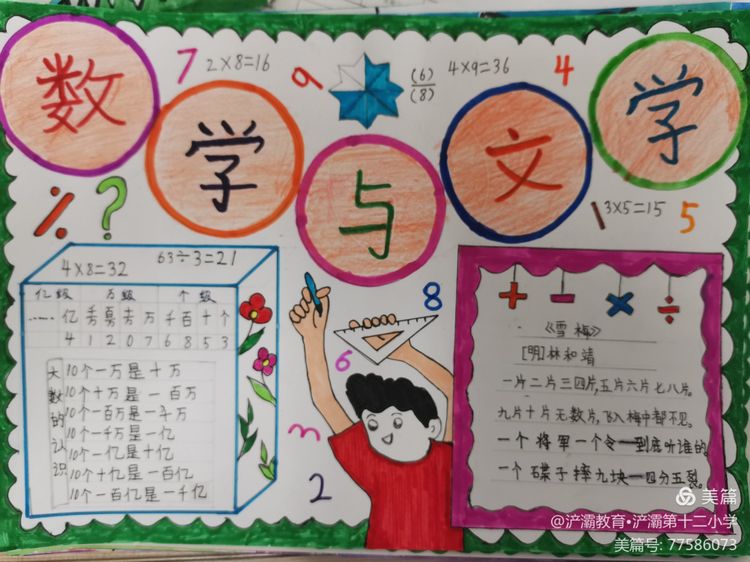 数学与文学
7 2×8=16
9
(6)/(8)
4×9=36
4
÷ ?
3×5=15
5
4×8=32 63÷3=21
亿级 万级 个级
…… 亿 千 百 十 万 千 百 十 个
4 1 2 0 7 6 8 5 3
大数的认识
10个一万是十万
10个十万是一百万
10个一百万是一千万
10个一千万是一亿
10个一亿是十亿
10个十亿是一百亿
10个一百亿是一千亿
8
6
3
2
+ - × ÷
《雪梅》
[明]林和靖
一片二片三四片,五片六片七八片。
九片十片无数片,飞入梅中都不见。
一个将军一个令一到底听谁的
一个碟子摔九块一四分五裂。
美篇
@浐灞教育•浐灞第十二小学
美篇号: 77586073